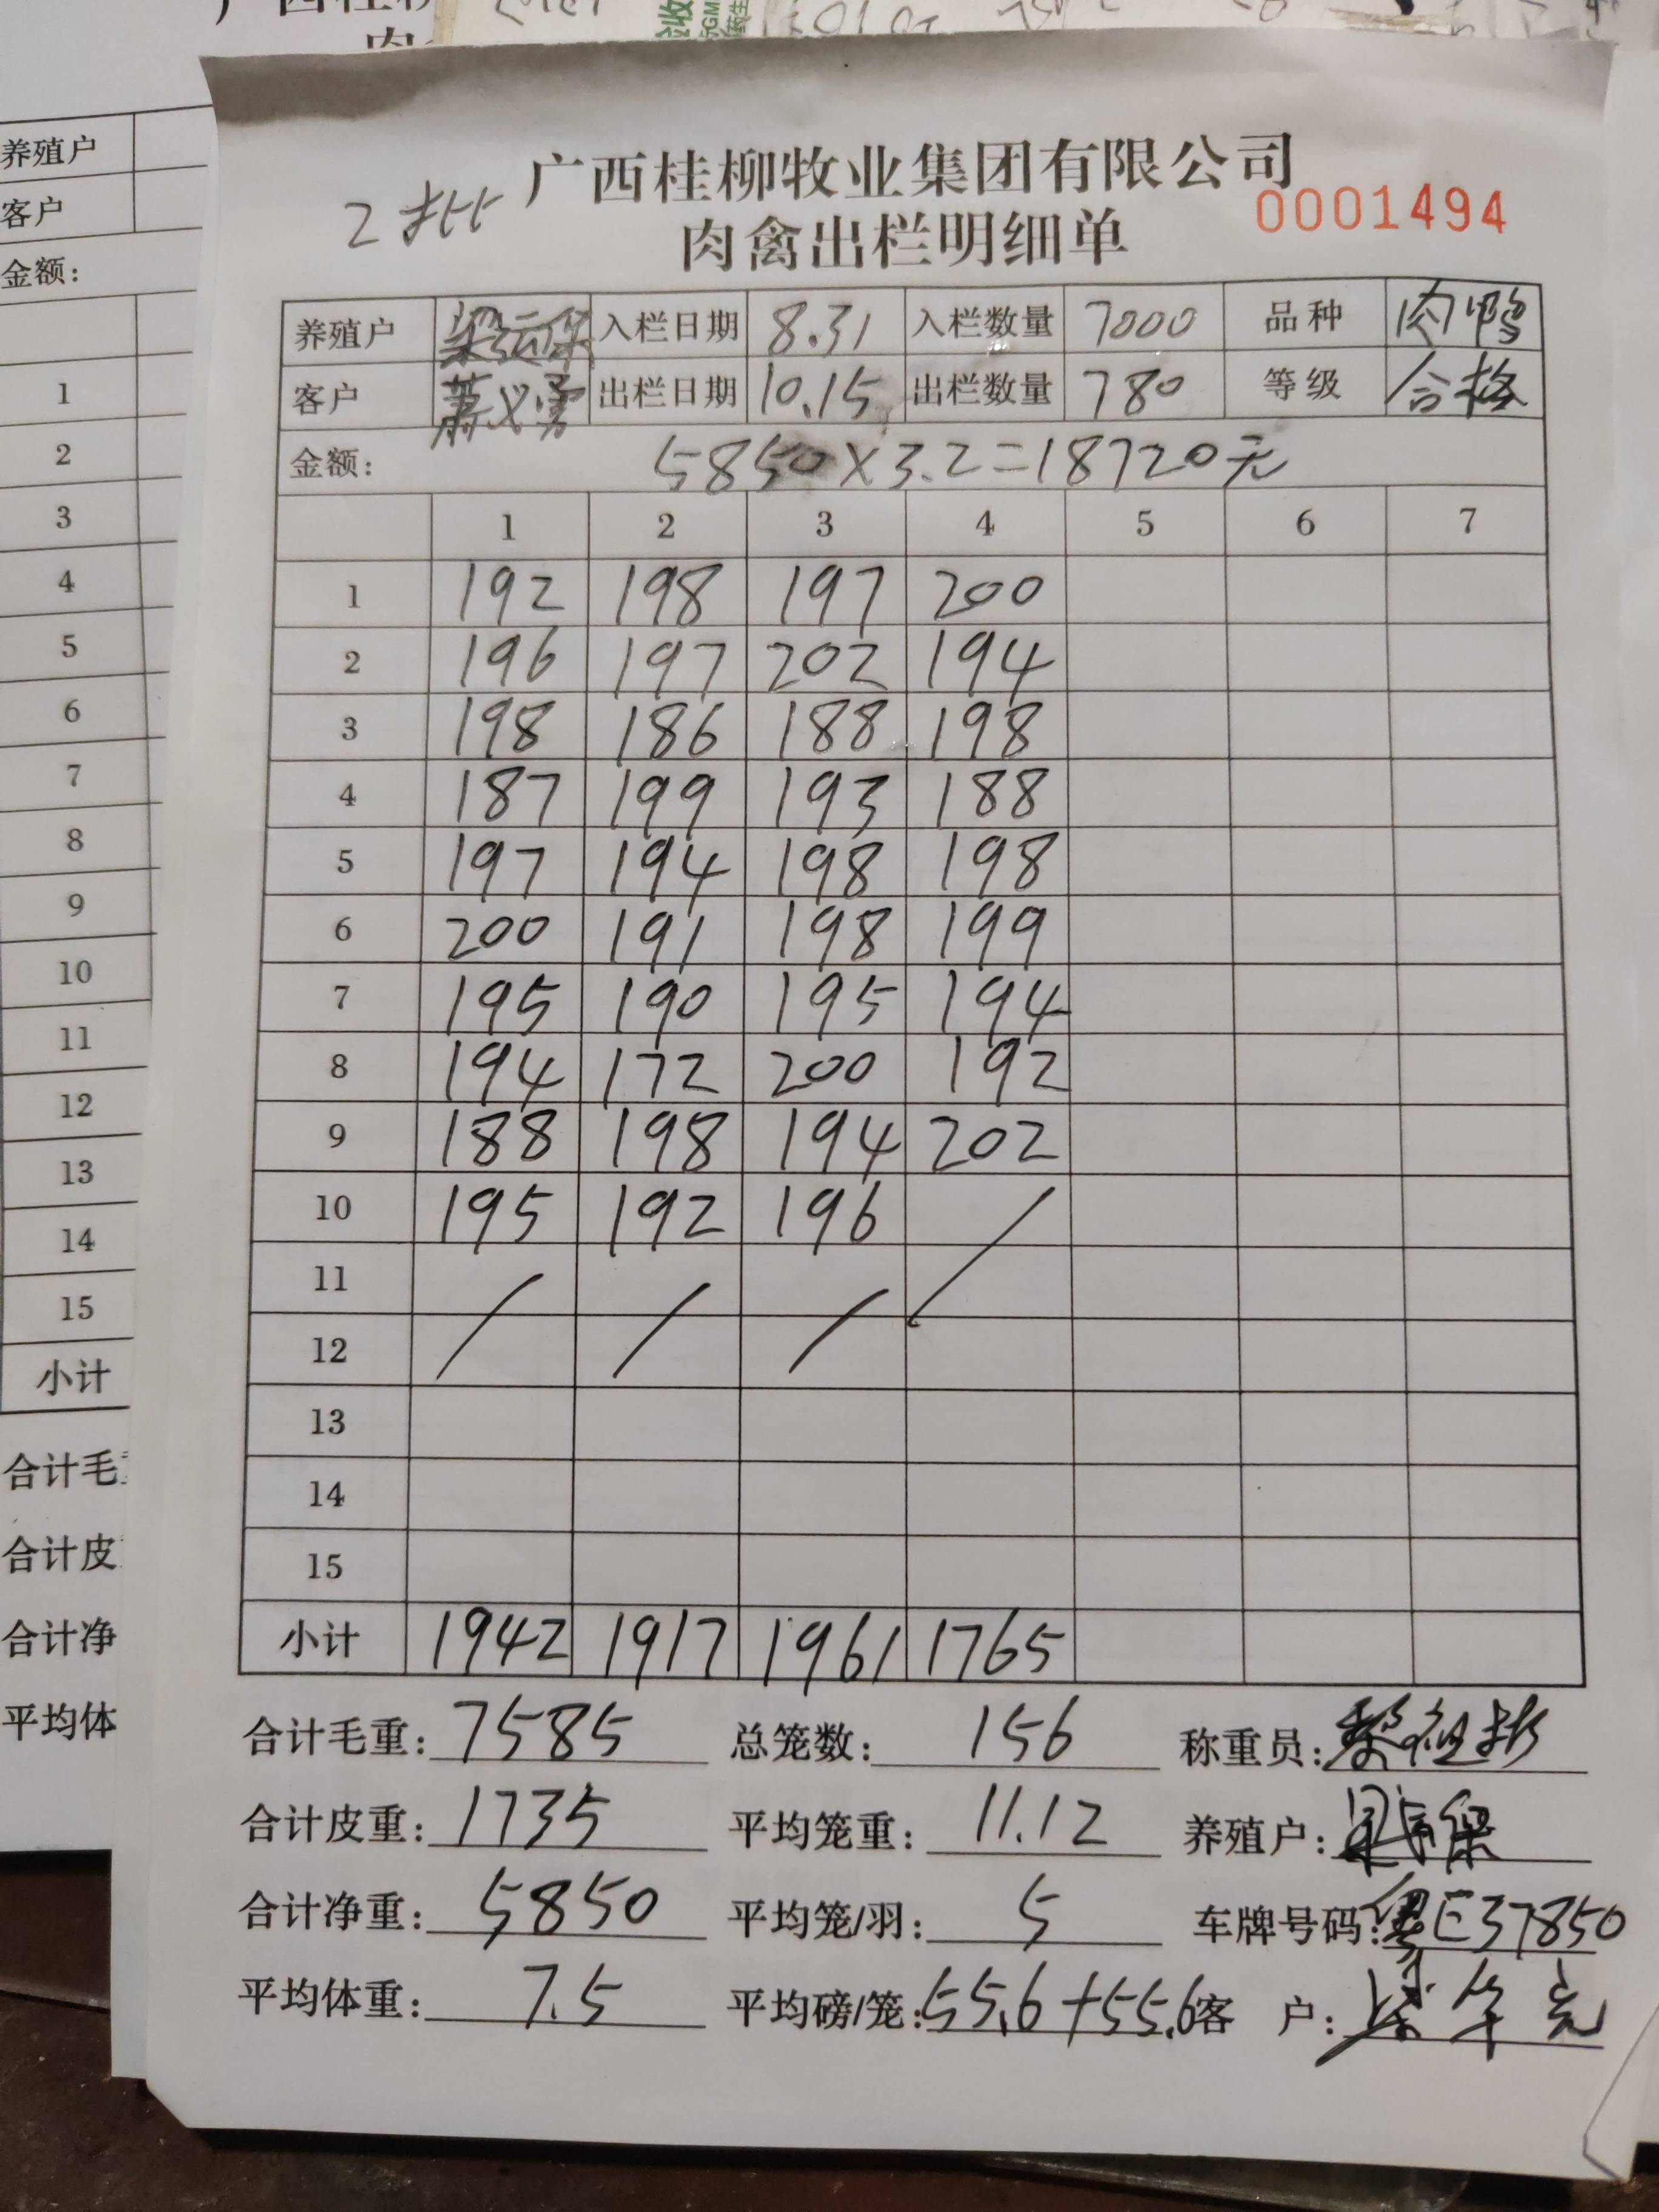 广西桂柳牧业集团有限公司
2批 肉禽出栏明细单 0001494
养殖户 梁运保 入栏日期 8.31 入栏数量 7000 品种 肉鸭
客户 萧义勇 出栏日期 10.15 出栏数量 780 等级 合格
金额: 5850×3.2=18720元
1 2 3 4 5 6 7
1 192 198 197 200
2 196 197 202 194
3 198 186 188 198
4 187 199 193 188
5 197 194 198 198
6 200 191 198 199
7 195 190 195 194
8 194 172 200 192
9 188 198 194 202
10 195 192 196 /
11
12 / / /
13
14
15
小计 1942 1917 1961 1765
合计毛重: 7585 总笼数: 156 称重员: 黎祖彬
合计皮重: 1735 平均笼重: 11.12 养殖户:
合计净重: 5850 平均笼/羽: 5 车牌号码: 粤E37850
平均体重: 7.5 平均磅/笼: 55.6+55.6 客 户:
养殖户
客户
金额:
1
2
3
4
5
6
7
8
9
10
11
12
13
14
15
小计
合计毛
合计皮
合计净
平均体